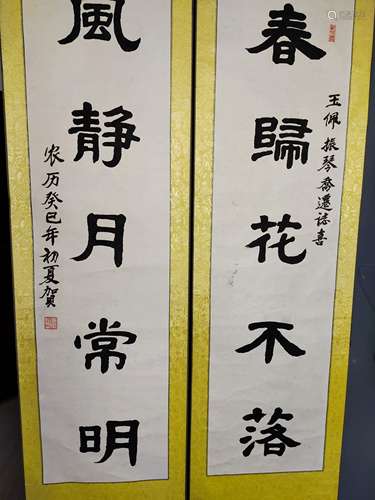 春歸花不落
王佩振琴喬遷誌喜
風静月常明
农历癸巳年初夏賀